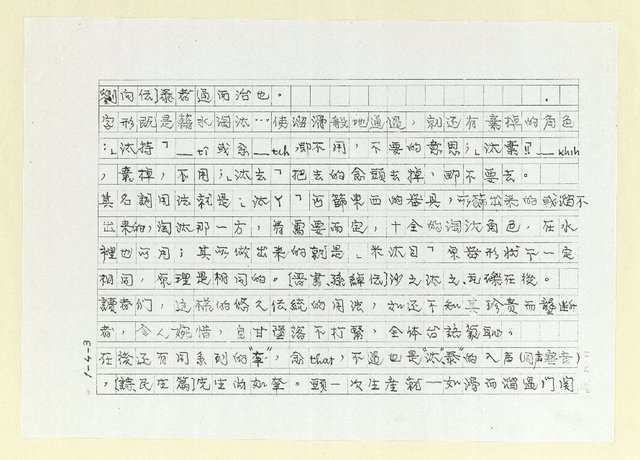 劉向伝]泰者通而治也。
字形既是藉水淘汰…使溜滑般地通過，就还有棄掉的角色
汰持 __tī 或系 __tch 都不用，不要的意思；汰棄!! __khih
，棄掉，不用；汰去 把去的念頭去掉，即不要去。
其名詞用法就是 汰丫 百篩東西的器具，所篩出来的或溜不
出来的，淘汰那一方，看需要而定，十全的淘汰角色，在水
裡也可用；其所做出来的就是 米汰目 粟 形狀不一定
相同，原理是相同的。[晋書.孫綽伝]沙之汰之,瓦礫在後。
讀者们，这樣的悠久伝統的用法，如还不知其珍貴而壟断
者，令人婉惜，自甘墜落不打緊，全体台語氣 。
在後还有同系列的"羍"，念that，不過也是汰"泰"的入声
，[詩.民生篇]先生如羍。頭一次生産就一如滑而溜過门関
1-4-3